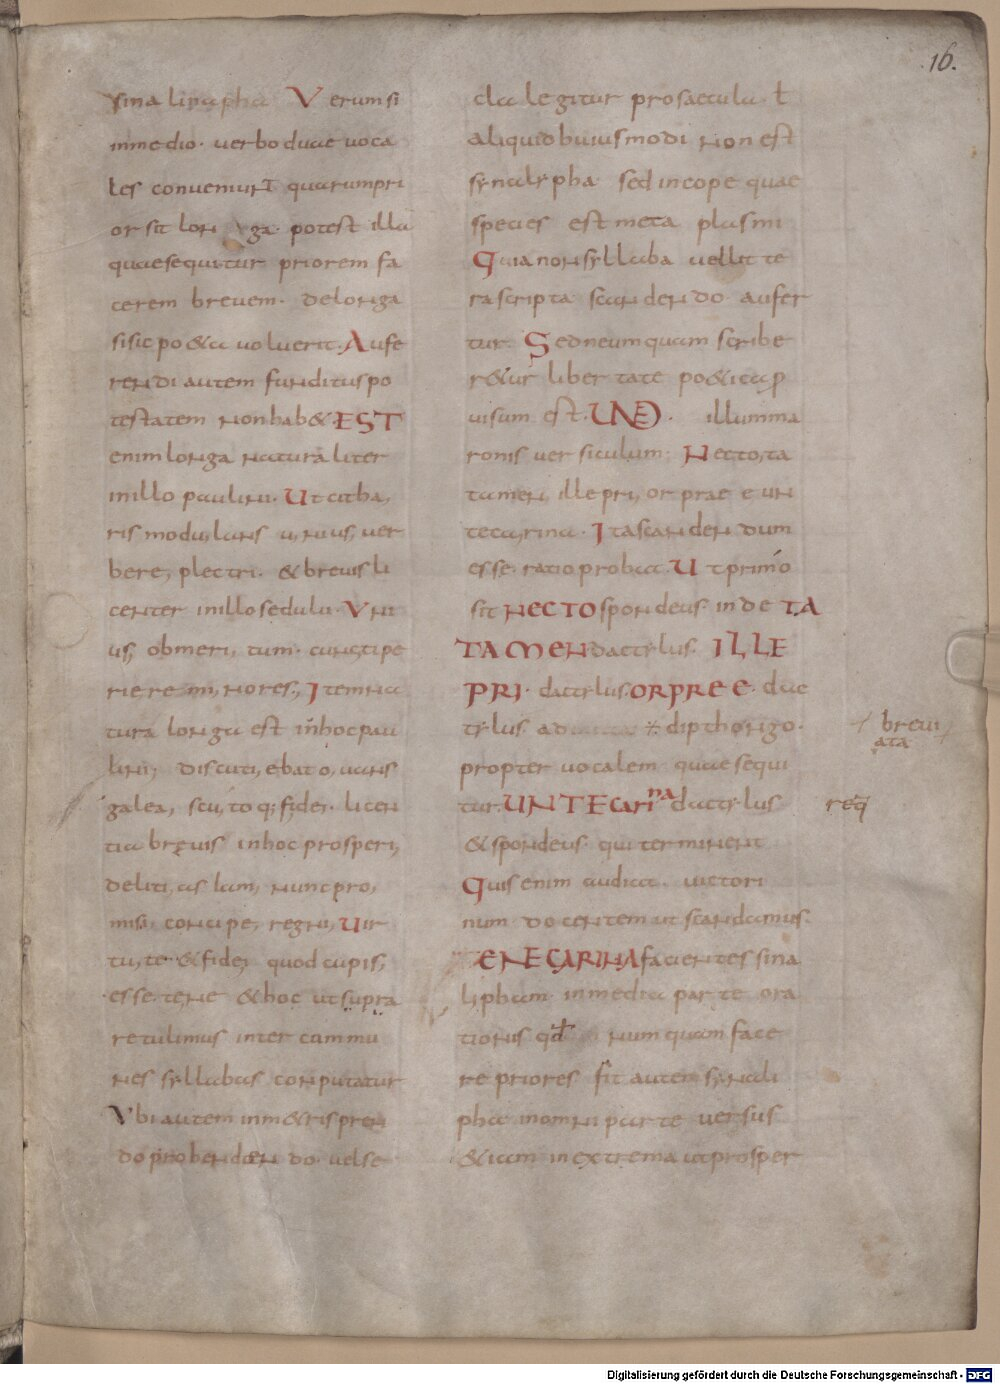 16.
sina lipapha Verum si
in medio· verbo duae voca
les conveniunt quarum pri
or sit lon ga· potest illa
quae sequitur priorem fa
cerem brevem· de longa
si sic po&a voluerit· Aufe
rendi autem funditus po
testatem non hab& EST
enim longa naturaliter
in illo paulini· Ut citha,
ris modu,lans u,nius, ver
bere, plectri· & brevis li
center in illo sedulii· Uni
us, obmeri, tum· cunc,ti pe
riere mi,nores, Item na
tura longa est in hoc pau
lini; discuti,ebat o,vans
galea, scu,to q; fidei· licen
tia brevis in hoc prosperi,
deliti,as iam, nunc pro,
misi, concipe, regni, Uir
tu,te & fidei quod cupis,
esse tene & hoc ut supra
retulimus inter commu
nes syllabas conputatur
Ubi autem in m&ris pren
do pro bendaen do· vel se
cla legitur pro saecula· ł
aliquid huiusmodi non est
synalypha· sed incope quae
species est meta plasmi
Quia non syllaba vel litte
ra scripta scandendo aufer
tur· Sed ne umquam scribe
r&ur libertate po&ica p
uisum est· UNE· illum ma
ronis versiculum· Necto,ta
tamen, ille pri, or prae eun
te ca,rina· Ita scandendum
esse· ratio probat· Ut primo
sit NECTO spondeus· inde TA
TAMEN dactylus· ILLE
PRI· dactylus· OR PREE· dac
tylus· ad dipthongo·
propter vocalem quae sequi
tur· UNTE Carina dactylus
& spondeus· qui terminent
Quis enim audiat· victori
num docentem ut scandamus·
ENE CARINA facientes sina
lipham in media parte ora
tionis qđ numquam face
re priores fit autem synali
pha in omni parte versus
& iam in extrema ut prosper
brevi
ata
req
Digitalisierung gefördert durch die Deutsche Forschungsgemeinschaft - DFG